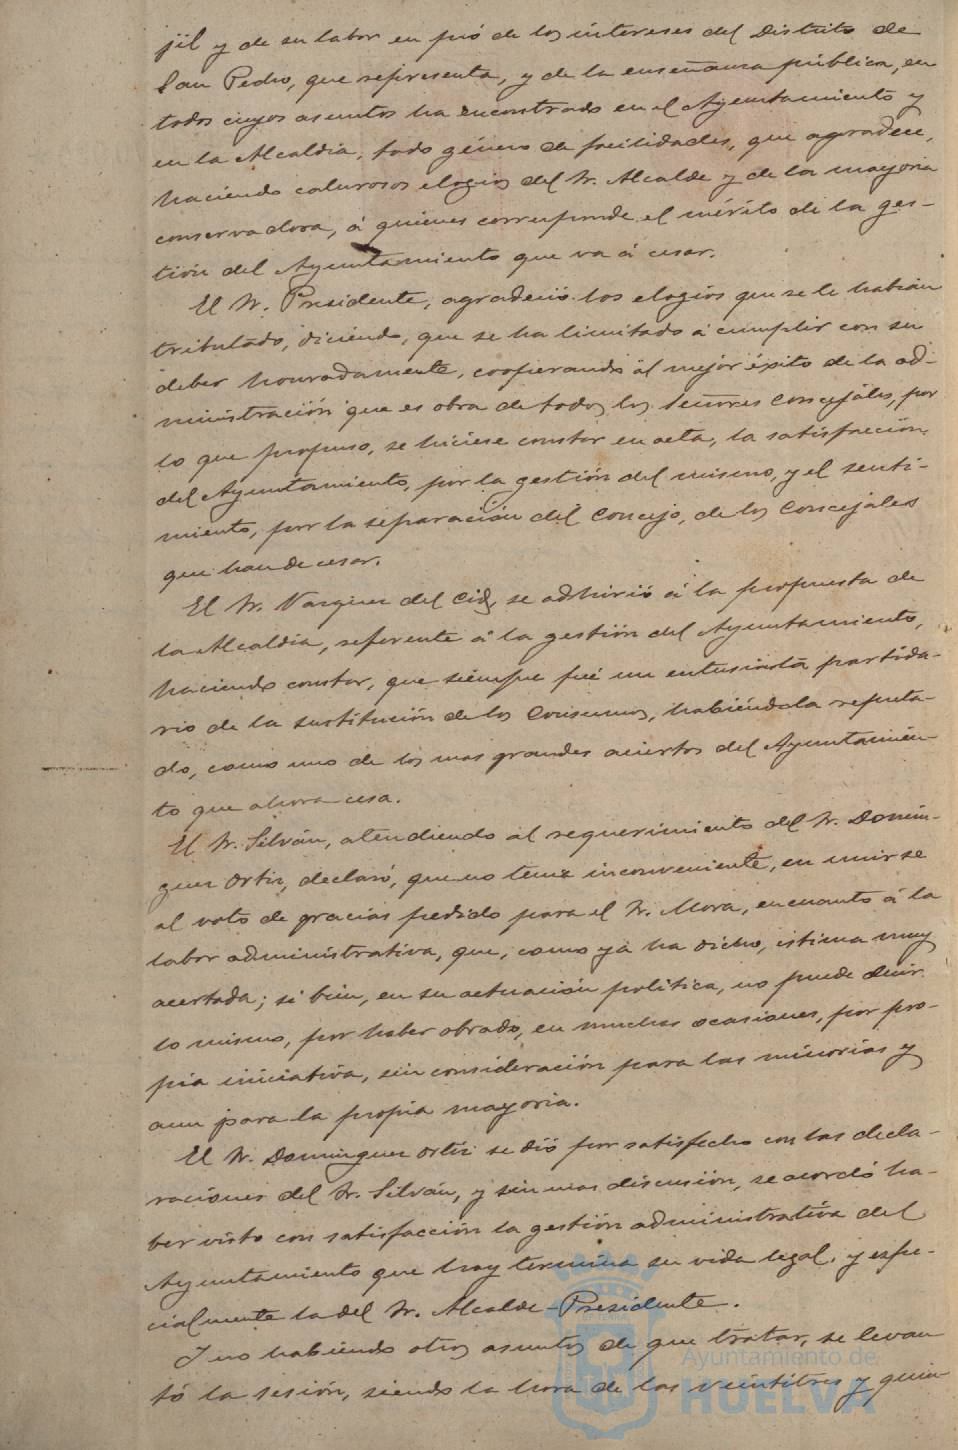 jil y de su labor en pró de los intereses del Distrito de
San Pedro, que representa, y de la enseñanza pública, en
todos cuyos asuntos ha encontrado en el Ayuntamiento y
en la Alcaldia, todo género de facilidades, que agradece,
haciendo calurosos elogios del Sr. Alcalde y de la mayoria
conservadora, á quienes corresponde el mérito de la ges-
tión del Ayuntamiento que va á cesar.
El Sr. Presidente, agradeció los elogios que se le habian
tributado, diciendo, que se ha limitado á cumplir con su
deber honradamente, cooperando al mejor éxito de la ad-
ministración que es obra de todos los Señores Concejales, por
lo que propuso, se hiciese constar en acta, la satisfacción
del Ayuntamiento, por la gestión del mismo, y el senti-
miento, por la separación del Concejo, de los Concejales
que han de cesar.
El Sr. Vazquez del Cid, se adhirió á la propuesta de
la Alcaldia, referente á la gestión del Ayuntamiento,
haciendo constar, que siempre fué un entusiasta partida-
rio de la sustitución de los Consumos, habiéndola reputa-
do, como uno de los mas grandes aciertos del Ayuntamien-
to que ahora cesa.
El Sr. Silván, atendiendo al requerimiento del Sr. Domin-
guez Ortiz, declaró, que no tenia inconveniente, en unirse
al voto de gracias pedido para el Sr. Mora, en cuanto á la
labor administrativa, que, como ya ha dicho, estima muy
acertada; si bien, en su actuación politica, no puede decir
lo mismo, por haber obrado, en muchas ocasiones, por pro-
pia iniciativa, sin consideración para las minorias y
aun para la propia mayoria.
El Sr. Dominguez Ortiz se dió por satisfecho con las decla-
raciones del Sr. Silván, y sin mas discusión, se acordó ha-
ber visto con satisfacción la gestión administrativa del
Ayuntamiento que hoy termina su vida legal, y espe-
cialmente la del Sr. Alcalde-Presidente.
Y no habiendo otros asuntos de que tratar, se levan
tó la sesión, siendo la hora de las veintitres y quin
Ayuntamiento de
HUELVA